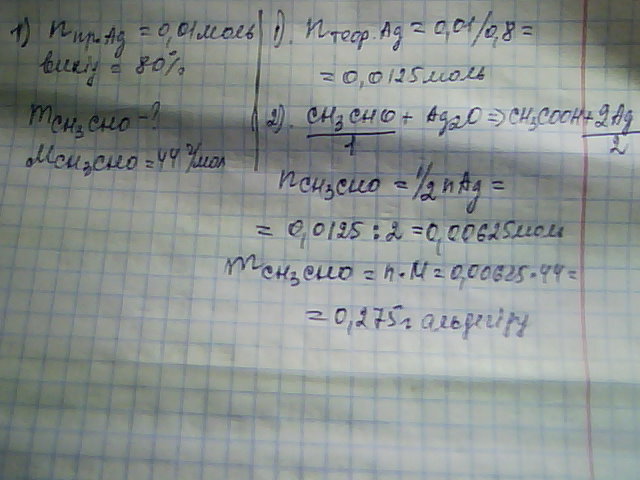 1) nпр.Ag = 0,01 моль
вихід = 80%
mCH₃CHO - ?
MCH₃CHO = 44 г/мол
1). nтеор. Ag = 0,01/0,8 =
= 0,0125 моль
2). CH₃CHO + Ag₂O => CH₃COOH + 2Ag
1 2
nCH₃CHO = 1/2 nAg =
= 0,0125 : 2 = 0,00625 моль
mCH₃CHO = n·M = 0,00625·44 =
= 0,275 г альдегіду